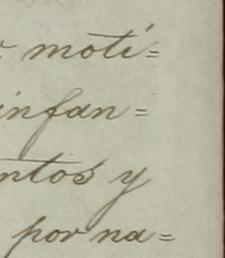 moti=
infan=
ntos y
por na=